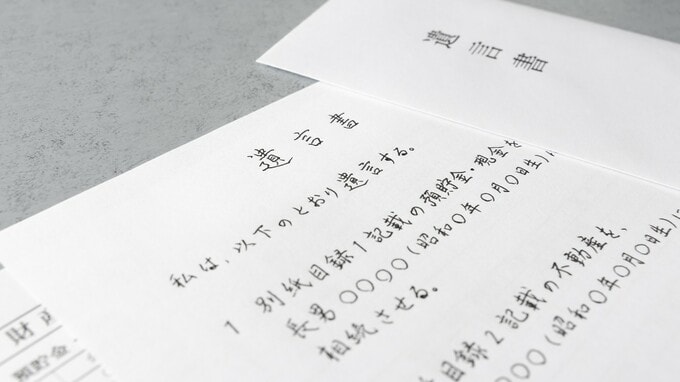 遺言書
遺言書
私は、以下のとおり遺言する。
1 別紙目録1記載の預貯金・現金を
長男〇〇〇〇(昭和〇年〇月〇日生)に
相続させる。
目録2記載の不動産を、
〇〇(昭和〇年〇月〇日生)に
財
預貯金・